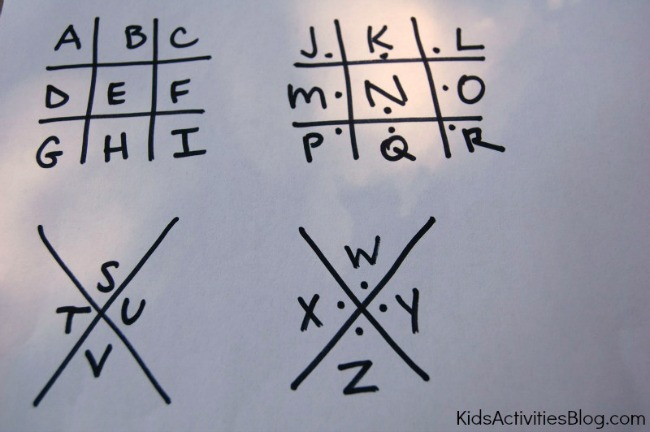 A B C
D E F
G H I
J K L
M N O
P Q R
S
T U
V
W
X Y
Z
KidsActivitiesBlog.com